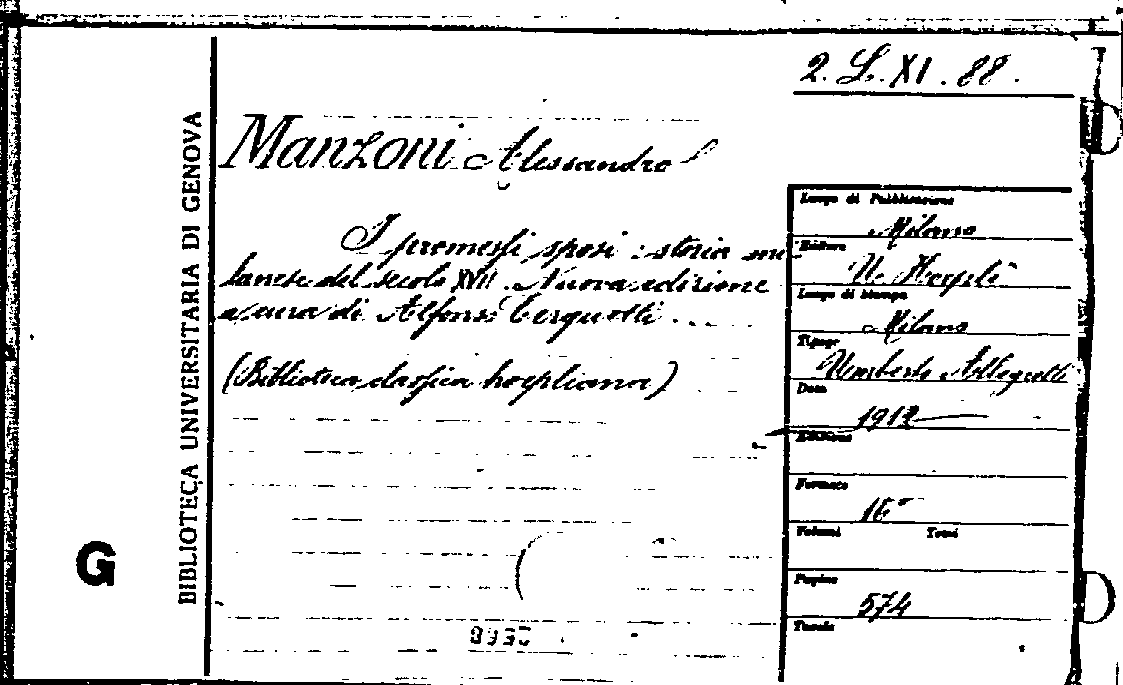 2. L. XI. 88.
BIBLIOTECA UNIVERSITARIA DI GENOVA
G
Manzoni Alessandro
I promessi sposi : storia mi-
lanese del secolo XVII. Nuova edizione
a cura di Alfonso Cerquetti
(Biblioteca classica hoepliana)
Luogo di Pubblicazione
Milano
Editore
U. Hoepli
Luogo di Stampa
Milano
Tipogr.
Umberto Allegretti
Data
1912
Edizione
Formato
16°
Volumi Tomi
Pagine
574
Tavole